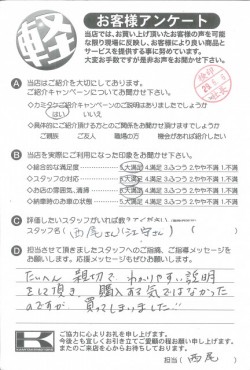 軽
お客様アンケート
当店では、お買い上げ頂いたお客様の声を可能
な限り現場に反映し、お客様により良い商品と
サービスを提供する事に努めています。
大変お手数ですが是非お声をお聞かせ下さい。
A 当店はご紹介を大切にしております。
ご紹介キャンペーンについてお聞かせ下さい。
はい いいえ
ご親族 ご友人 職場の方 機会があれば紹介したい
B 当店を実際にご利用になった印象をお聞かせ下さい。
◇総合的な満足度 5.大満足 4.満足 3.ふつう 2.やや不満 1.不満
◇スタッフの対応 5.大満足 4.満足 3.ふつう 2.やや不満 1.不満
◇お店の雰囲気、清掃 5.大満足 4.満足 3.ふつう 2.やや不満 1.不満
◇納車時のお車の状態 5.大満足 4.満足 3.ふつう 2.やや不満 1.不満
C 評価したいスタッフがいれば
スタッフ名( 西尾さん(江守さん) )
D 担当させて頂きましたスタッフへのご指摘、ご指導メッセージを
お願いします。応援メッセージもぜひお聞かせ下さい。
たいへん 親切で わかりやすい 説明
をして頂き、購入する気ではなかった
のですが 買ってしまいました!!
K
ご協力に心よりお礼を申し上げます。
今後とも宜しくお引き立てご愛顧の程お願い申し上げます。
またのご来店を心からお待ちしております。
担当( 西尾 )